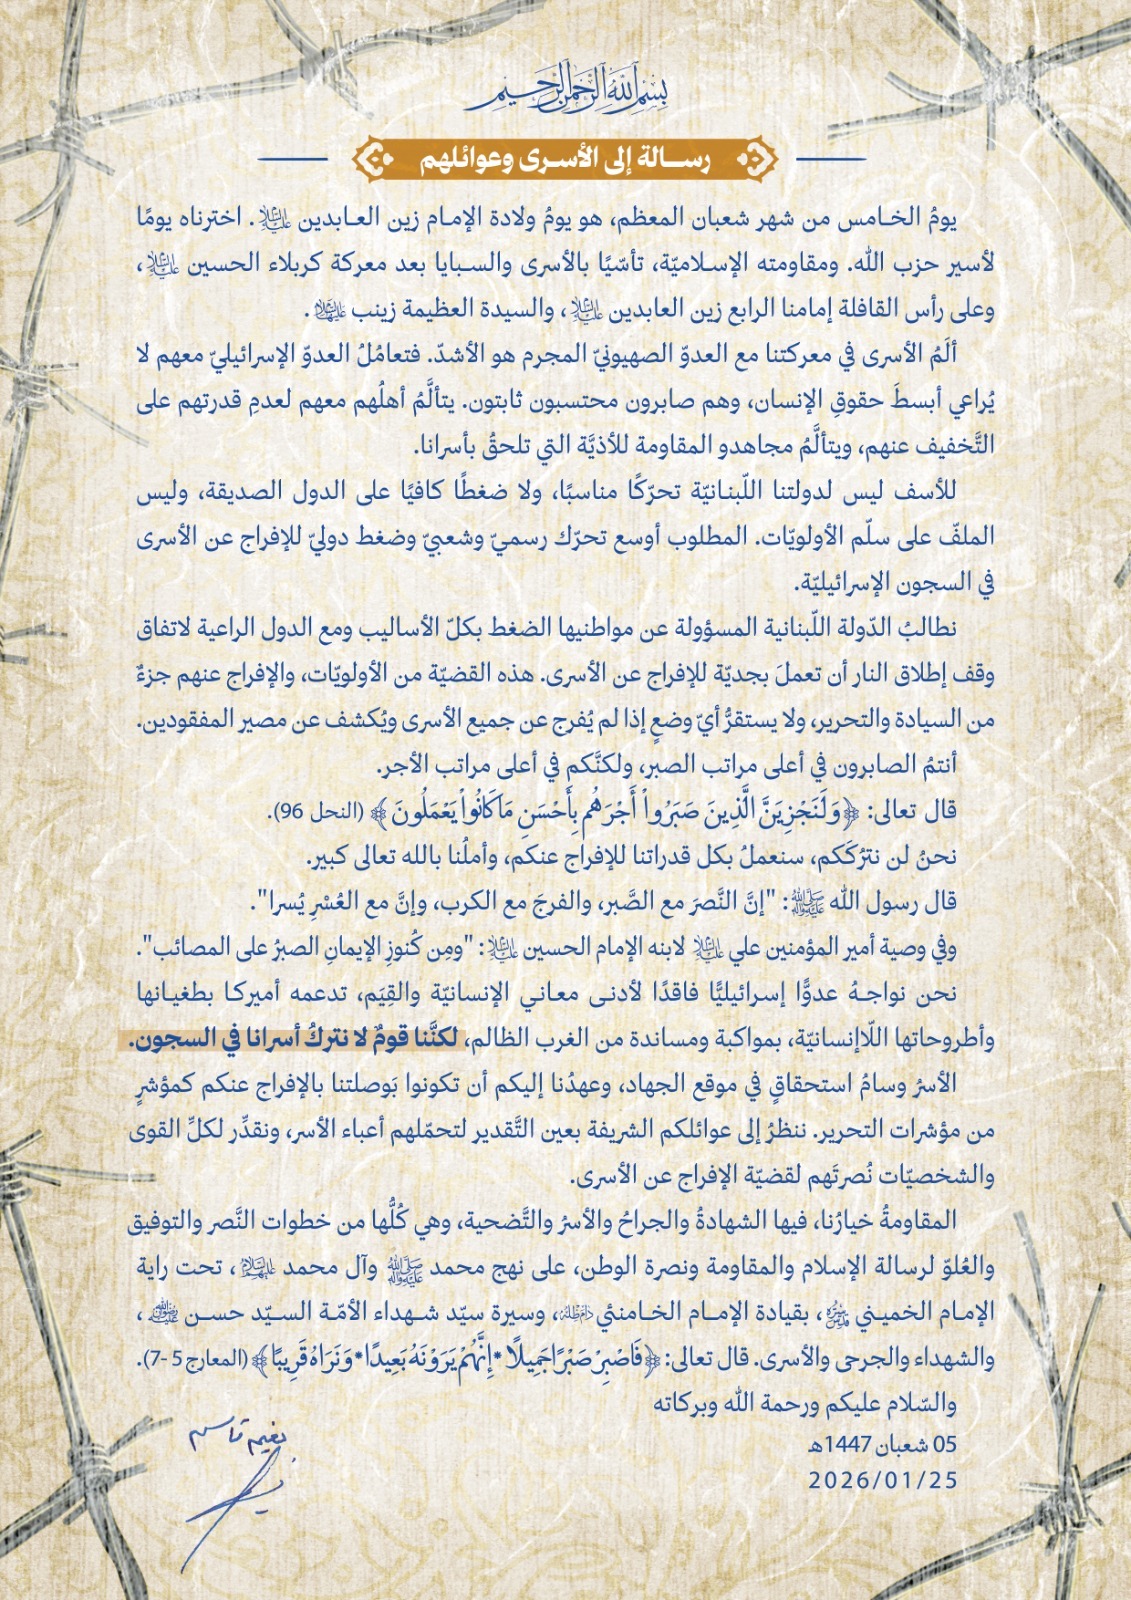 بسم الله الرحمن الرحيم
رسـالة إلى الأسـرى وعوائـلهم
يومُ الخامس من شهر شعبان المعظم، هو يومُ ولادة الإمام زين العابدين عليه السلام. اخترناه يومًا
لأسير حزب الله. ومقاومته الإسلاميّة، تأسّيًا بالأسرى والسبايا بعد معركة كربلاء الحسين عليه السلام،
وعلى رأس القافلة إمامنا الرابع زين العابدين عليه السلام، والسيدة العظيمة زينب عليها السلام.
ألَمُ الأسرى في معركتنا مع العدوّ الصهيونيّ المجرم هو الأشدّ. فتعامُلُ العدوّ الإسرائيليّ معهم لا
يُراعي أبسطَ حقوقِ الإنسان، وهم صابرون محتسبون ثابتون. يتألَّمُ أهلُهم معهم لعدمِ قدرتهم على
التَّخفيف عنهم، ويتألَّمُ مجاهدو المقاومة للأذيَّة التي تلحقُ بأسرانا.
للأسف ليس لدولتنا اللّبنانيّة تحرّكًا مناسبًا، ولا ضغطًا كافيًا على الدول الصديقة، وليس
الملفّ على سلّم الأولويّات. المطلوب أوسع تحرّك رسميّ وشعبيّ وضغط دوليّ للإفراج عن الأسرى
في السجون الإسرائيليّة.
نطالبُ الدّولة اللّبنانية المسؤولة عن مواطنيها الضغط بكلّ الأساليب ومع الدول الراعية لاتفاق
وقف إطلاق النار أن تعملَ بجديّة للإفراج عن الأسرى. هذه القضيّة من الأولويّات، والإفراج عنهم جزءٌ
من السيادة والتحرير، ولا يستقرُّ أيّ وضعٍ إذا لم يُفرج عن جميع الأسرى ويُكشف عن مصير المفقودين.
أنتمُ الصابرون في أعلى مراتب الصبر، ولكنَّكم في أعلى مراتب الأجر.
قال تعالى: ﴿وَلَنَجْزِيَنَّ الَّذِينَ صَبَرُواْ أَجْرَهُم بِأَحْسَنِ مَا كَانُواْ يَعْمَلُونَ﴾ (النحل 96).
نحنُ لن نترُكَكم، سنعملُ بكل قدراتنا للإفراج عنكم، وأملُنا بالله تعالى كبير.
قال رسول الله صلى الله عليه وآله: "إنَّ النَّصرَ مع الصَّبر، والفرجَ مع الكرب، وإنَّ مع العُسْرِ يُسرا".
وفي وصية أمير المؤمنين علي عليه السلام لابنه الإمام الحسين عليه السلام: "ومِن كُنوزِ الإيمانِ الصبرُ على المصائب".
نحن نواجهُ عدوًّا إسرائيليًّا فاقدًا لأدنى معاني الإنسانيّة والقِيَم، تدعمه أميركا بطغيانها
وأطروحاتها اللّاإنسانيّة، بمواكبة ومساندة من الغرب الظالم، لكنَّنا قومٌ لا نتركُ أسرانا في السجون.
الأسرُ وسامُ استحقاقٍ في موقع الجهاد، وعهدُنا إليكم أن تكونوا بَوصلتنا بالإفراج عنكم كمؤشرٍ
من مؤشرات التحرير. ننظرُ إلى عوائلكم الشريفة بعين التَّقدير لتحمّلهم أعباء الأسر، ونقدِّر لكلِّ القوى
والشخصيّات نُصرتَهم لقضيّة الإفراج عن الأسرى.
المقاومةُ خيارُنا، فيها الشهادةُ والجراحُ والأسرُ والتَّضحية، وهي كُلُّها من خطوات النَّصر والتوفيق
والعُلوّ لرسالة الإسلام والمقاومة ونصرة الوطن، على نهج محمد صلى الله عليه وآله وآل محمد عليهم السلام، تحت راية
الإمام الخميني قدس سره، بقيادة الإمام الخامنئي دام ظله، وسيرة سيّد شهداء الأمّة السيّد حسن رضوان الله عليه،
والشهداء والجرحى والأسرى. قال تعالى: ﴿فَاصْبِرْ صَبْرًا جَمِيلًا * إِنَّهُمْ يَرَوْنَهُ بَعِيدًا * وَنَرَاهُ قَرِيبًا﴾ (المعارج 5 -7).
والسّلام عليكم ورحمة الله وبركاته
05 شعبان 1447هـ
2026/01/25
نعيم قاسم